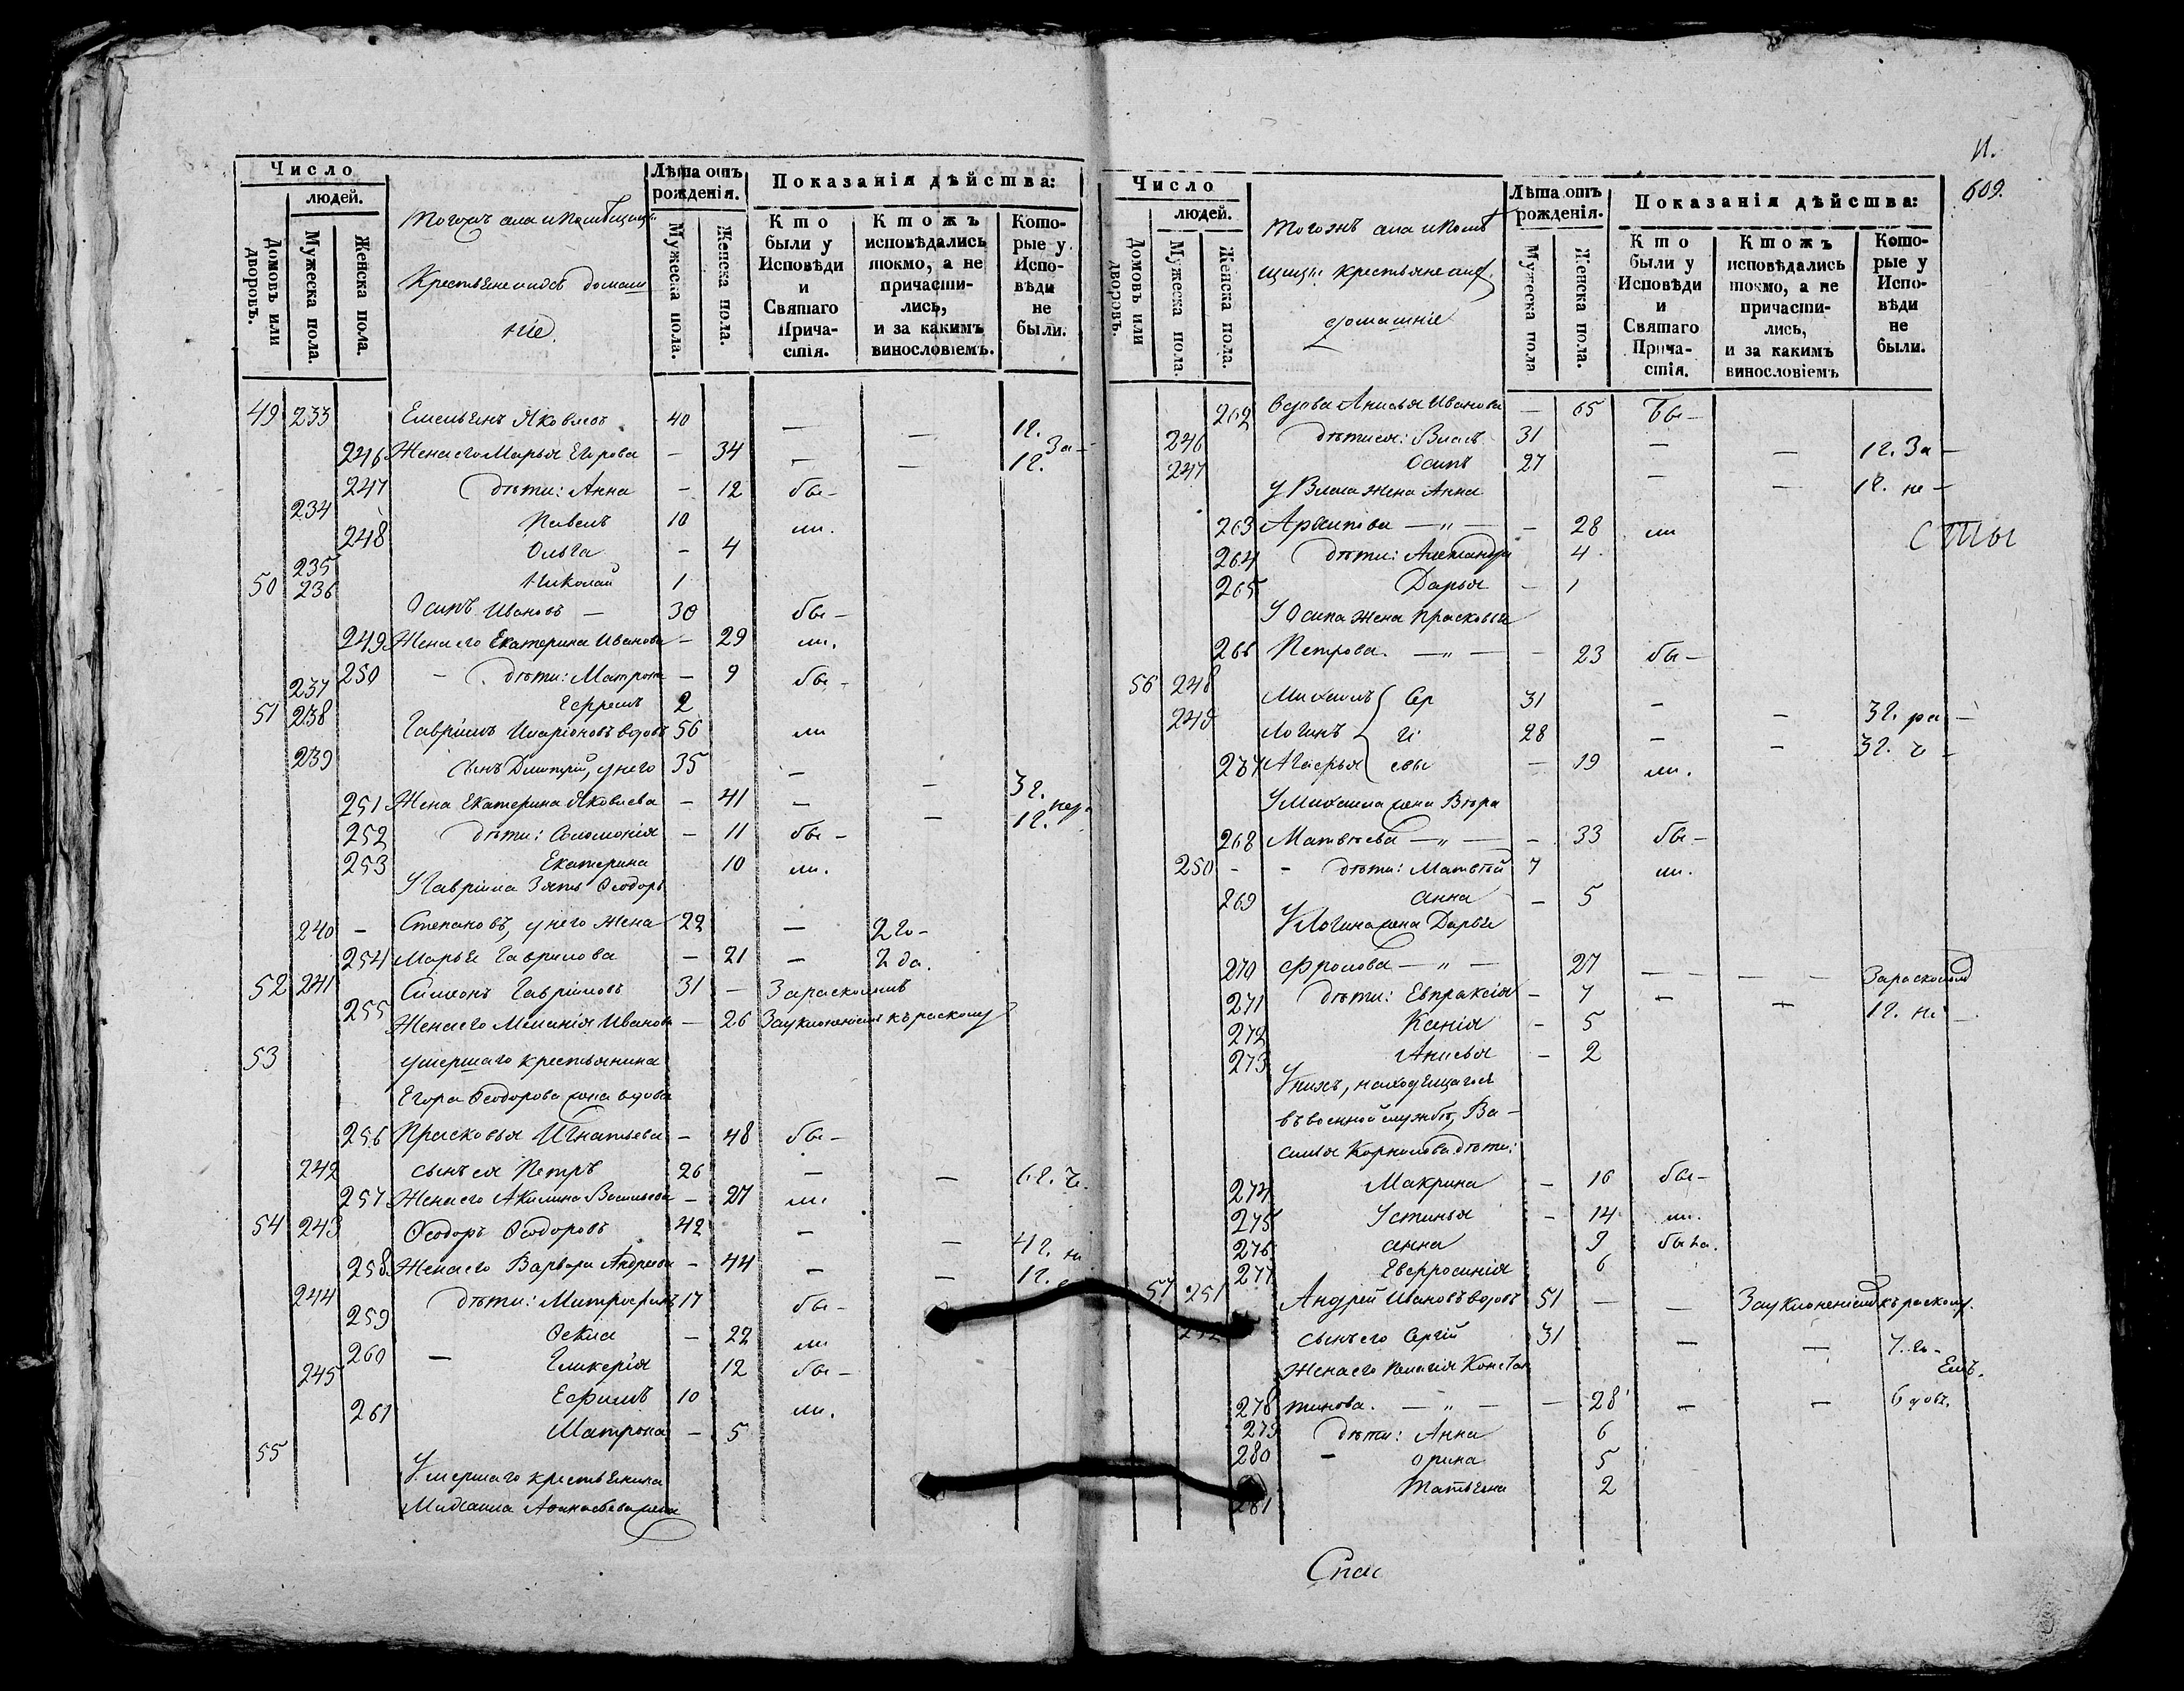 Число
людей.
Домовъ или дворовъ.
Мужеска пола.
Женска пола.
Тогожъ села и помѣщицы
Крестьяне и ихъ домаш
ніе.
Лѣта отъ рожденія.
Мужеска пола.
Женска пола.
Показанія дѣйства:
Кто были у Исповѣди и Святаго Причастія.
Ктожъ исповѣдались токмо, а не причастились, и за какимъ винословіемъ.
Которые у Исповѣди не были.
49 233 Емельянъ Яковлевъ 40 — — 1 г.
246 Жена его Марья Егорова — 34 — — 1 г. За —
247 Дѣти: Анна — 12 бы —
234 Павелъ 10 ли.
248 Ольга — 4
235 Николай 1
50 236 Осипъ Ивановъ — 30 бы —
249 Жена его Екатерина Иванова — 29 ли.
250 — Дѣти: Матрона — 9 бы —
237 Ефремъ 2
51 238 Гавріилъ Иларіоновъ вдовъ 56 ли
239 Сынъ Димитрій, у него 35 — — 3 г.
251 Жена Екатерина Яковлева — 41 — — 1 г.
252 Дѣти: Соломонія — 11 бы —
253 Екатерина 10 ли.
У Гавріила Зять Ѳеодоръ
240 — Степановъ, у него жена 22 — 2 го —
254 Марья Гаврилова — 21 — 2 да.
52 241 Симеонъ Гавріиловъ 31 — За расколомъ
255 Жена его Меланія Иванова — 26 За уклоненіемъ къ расколу
53 умершаго крестьянина
Егора Ѳеодорова жена вдова
256 Прасковья Игнатьева — 48 бы —
242 сынъ ея Петръ 26 — — 6 г. ч.
257 Жена его Акилина Васильева — 27 ли
54 243 Ѳеодоръ Ѳеодоровъ 42 — — 4 г. н
258 Жена его Варвара Андреева — 44 — — 1 г.
244 Дѣти: Митрофанъ 17 бы —
259 Ѳекла — 22 ли
260 — Гликерія 12 бы —
245 Ефимъ 10 ли.
261 Матрона — 5
55 Умершаго крестьянина
Михаила Аѳанасьева жена
609.
Число
людей.
Домовъ или дворовъ.
Мужеска пола.
Женска пола.
Тогожъ села и помѣ
щицы крестьяне и ихъ
домашніе
Лѣта отъ рожденія.
Мужеска пола
Женска пола.
Показанія дѣйства:
Кто были у Исповѣди и Святаго Причастія.
Ктожъ исповѣдались токмо, а не причастились, и за какимъ винословіемъ
Которые у Исповѣди не были.
262 вдова Анисья Иванова — 65 бы —
246 Дѣти ея: Власъ 31 — — 1 г. За —
247 Осипъ 27 — — 1 г. не —
У Власа жена Анна
263 Архипова — „ — — 28 ли
сты
264 Дѣти: Александра 4
265 Дарья — 1
У Осипа жена Прасковья
266 Петрова. — „ — — 23 бы —
56 248 Михаилъ Сер 31 — — 3 г. ра —
249 Логинъ гі 28 — — 3 г. ч —
267 Агафья евы — 19 ли.
У Михаила жена Вѣра
268 Матвѣева — „ — — 33 бы —
250 — — Дѣти: Матвѣй 7 ли.
269 Анна — 5
У Логина жена Дарья
270 Фролова — „ — 27 — — — За расколомъ
271 Дѣти: Евпраксія — 7 — — 1 г. не —
272 Ксенія — 5
273 Анисья — 2
У нихъ, находящагося
въ военной службѣ, Ва —
силья Корнилова дѣти:
274 Макрина — 16 бы —
275 Устинья — 14 ли.
276 Анна 9 была.
277 Евфросинія 6
57 251 Андрей Ивановъ вдовъ 51 — — За уклоненіемъ къ расколу.
252 сынъ его Сергій 31 — — 7. го —
Жена его Пелагія Констан
278 тинова. — „ — — 28 — — 6 довъ.
279 Дѣти: Анна 6
280 — Орина 5
281 Татьяна 2
Спас